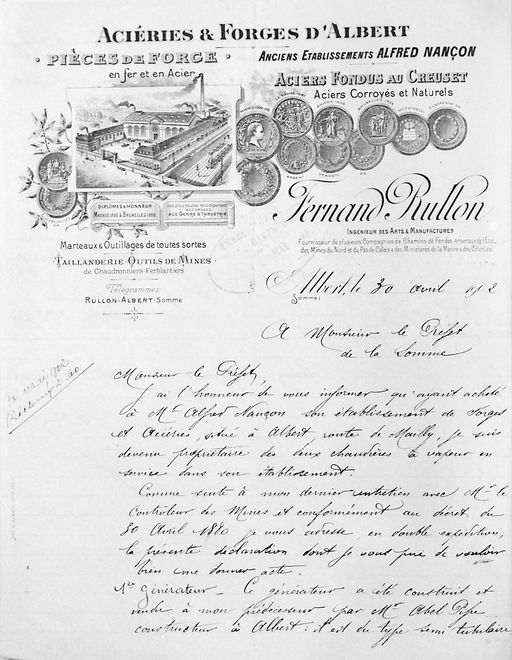 ACIÉRIES & FORGES D'ALBERT
PIÈCES DE FORGE
en fer et en Acier
ANCIENS ETABLISSEMENTS ALFRED NANÇON
ACIERS FONDUS AU CREUSET
Aciers Corroyés et Naturels
DIPLÔMES D'HONNEUR
MADRID 1890 & BRUXELLES 1888
les plus hautes récompenses
ACCORDÉES
A CE GENRE D'INDUSTRIE
Fernand Rullon
INGÉNIEUR DES ARTS & MANUFACTURES
Fournisseur de plusieurs Compagnies de Chemins de Fer, des Arsenaux de l'Etat,
des Mines du Nord et du Pas de Calais & des Ministères de la Marine & des Colonies
Marteaux & Outillages de toutes sortes
TAILLANDERIE-OUTILS DE MINES
de Chaudronniers-Ferblantiers
Télégrammes
RULLON-ALBERT-Somme
Albert, le 30 avril 1902
(Somme)
A Monsieur le Préfet
de la Somme
Monsieur le Préfet,
J'ai l'honneur de vous informer qu'ayant acheté
à Mr Alfred Nançon son établissement de Forges
et Aciéries, situé à Albert, route de Mailly, je suis
devenu propriétaire des deux chaudières à vapeur en
service dans son établissement.
Comme suite à mon dernier entretien avec Mr le
Contrôleur des Mines et conformément au décret du
30 Avril 1880 je vous adresse, en double expédition,
la présente déclaration dont je vous prie de vouloir
bien me donner acte.
1er Générateur - Ce générateur a été construit et
vendu à mon prédécesseur par Mr Abel Pifre
constructeur à Albert: il est du type semi tubulaire